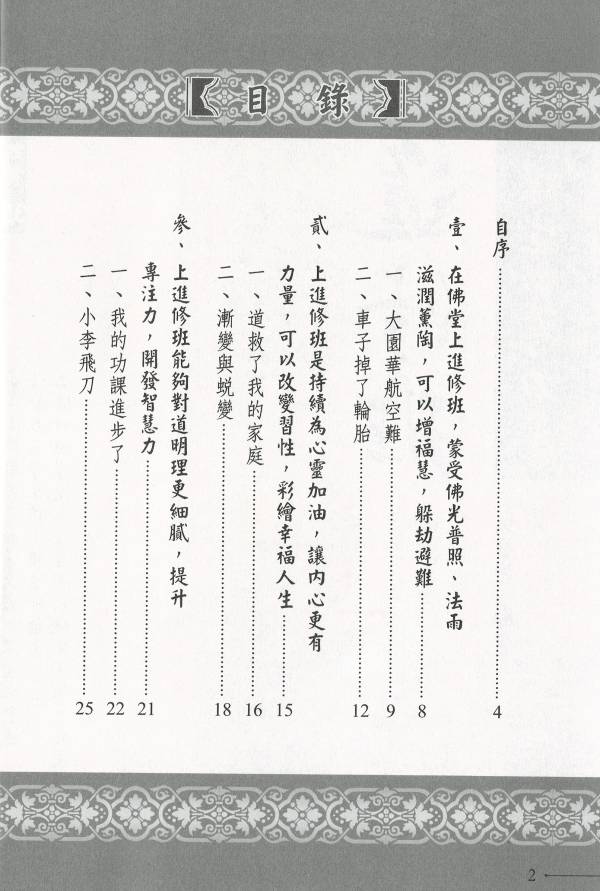 目錄
自序 4
壹、在佛堂上進修班，蒙受佛光普照、法雨
滋潤薰陶，可以增福慧，躲劫避難 8
一、大園華航空難 9
二、車子掉了輪胎 12
貳、上進修班是持續為心靈加油，讓內心更有
力量，可以改變習性，彩繪幸福人生 15
一、道救了我的家庭 16
二、漸變與蛻變 18
參、上進修班能夠對道明理更細膩，提升
專注力，開發智慧力 21
一、我的功課進步了 22
二、小李飛刀 25
2